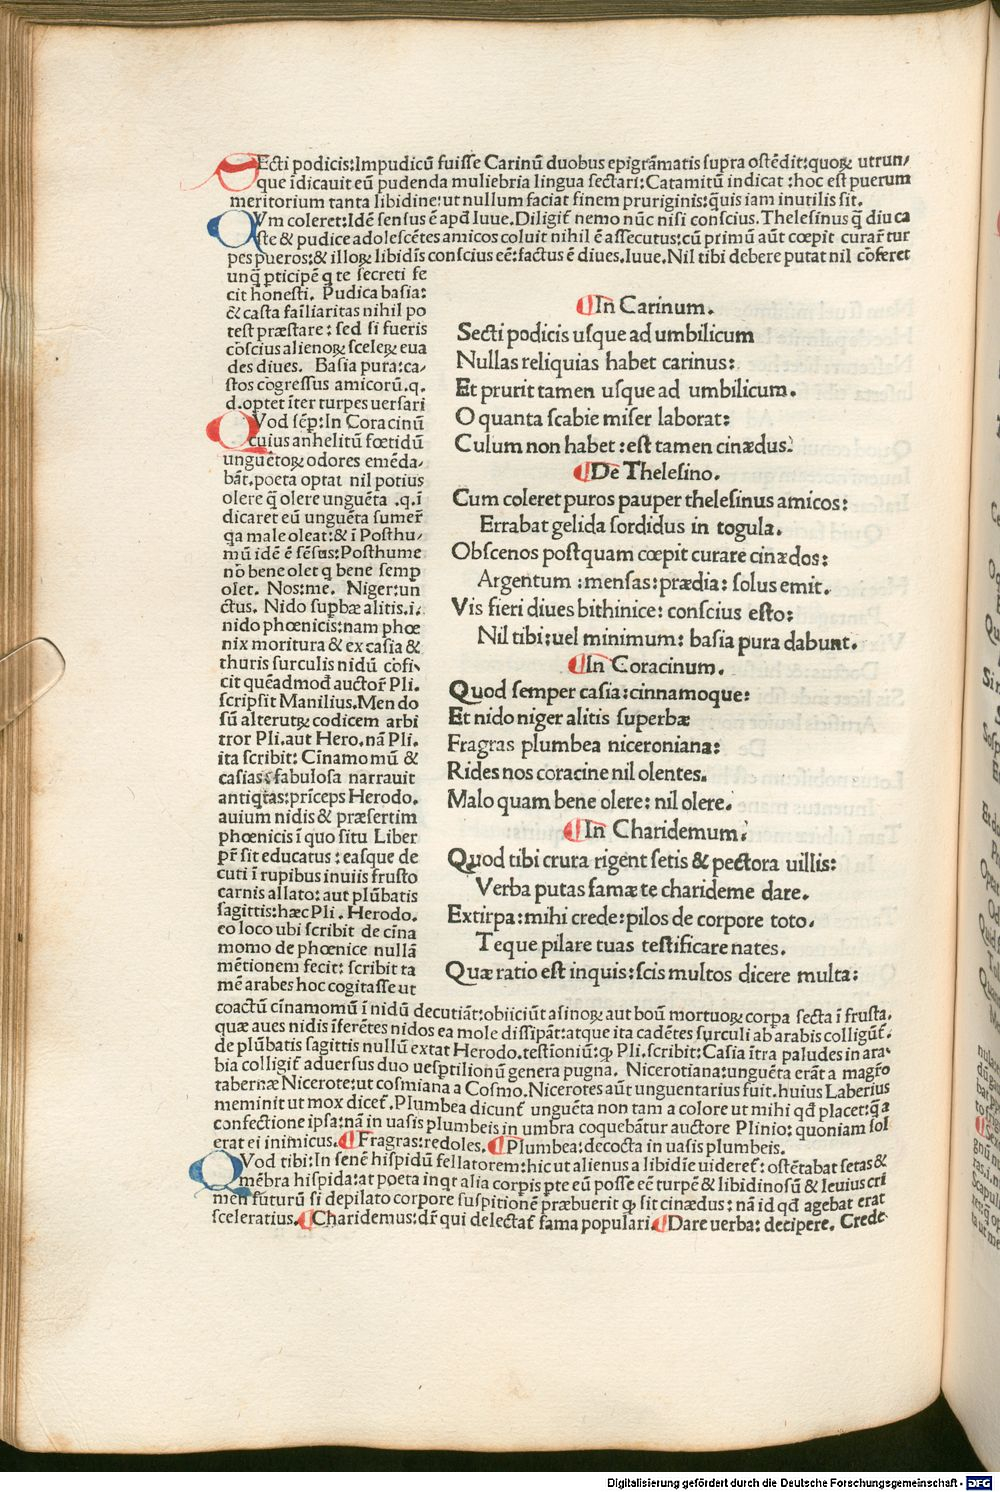 SEcti podicis:Impudicū fuiſſe Carinū duobus epigrāmatis ſupra oſtēdit:quoꝝ utrun/
que īdicauit eū pudenda muliebria lingua ſectari:Catamitū indicat :hoc eſt puerum
meritorium tanta libidine:ut nullum faciat finem pruriginis:q̄uis iam inutilis ſit.
QVm coleret:Idē ſenſus ē apd̄ Iuue.Diligit̄ nemo nūc niſi conſcius.Theleſinus q̄ diu ca
ſte & pudice adoleſcētes amicos coluit nihil ē aſſecutus:cū primū aūt cœpit curar̄ tur
pes pueros:& illoꝝ libidīs conſcius eē:factus ē diues.Iuue.Nil tibi debere putat nil cōferet
unq̄ pticipē q te ſecreti fe
cit honeſti. Pudica baſia:
& caſta fai̅liaritas nihil po
teſt præſtare: ſed ſi fueris
cōſcius alienoꝝ ſceleꝝ eua
des diues. Baſia pura:ca/
ſtos cōgreſſus amicorū.q.
d.optet īter turpes uerſari
QVod ſēp̄:In Coracinū
cuius anhelitū fœtidū
unguētoꝝ odores emēda/
bāt.poeta optat nil potius
olere q̄ olere unguēta .q.ī
dicaret eū unguēta ſumer̄
qa male oleat:& ī Poſthu/
mū idē ē ſēſus:Poſthume
nō bene olet q bene ſemp
olet. Nos:me. Niger:un
ctus. Nido ſupbæ alitis.i.
nido phœnicis:nam phœ
nix moritura & ex caſia &
thuris ſurculis nidū cōfi/
cit quēadmod̄ auctor̄ Pli.
ſcripſit Manilius.Men do
ſū alterutꝝ codicem arbi
tror Pli.aut Hero.nā Pli.
ita ſcribit: Cīnamomū &
caſias: fabuloſa narrauit
antiqtas:prīceps Herodo.
auium nidis & præſertim
phœnicis ī quo ſitu Liber
pr̄ ſit educatus : eaſque de
cuti ī rupibus inuiis fruſto
carnis allato: aut plūbatis
ſagittis:hæc Pli. Herodo.
eo loco ubi ſcribit de cīna
momo de phœnice nullā
mētionem fecit: ſcribit ta
mē arabes hoc cogitaſſe ut
¶In Carinum.
Secti podicis uſque ad umbilicum
Nullas reliquias habet carinus:
Et prurit tamen uſque ad umbilicum.
O quanta ſcabie miſer laborat:
Culum non habet :eſt tamen cinædus.
¶De Theleſino.
Cum coleret puros pauper theleſinus amicos:
Errabat gelida ſordidus in togula.
Obſcenos poſtquam cœpit curare cinædos:
Argentum :menſas:prædia: ſolus emit.
Vis fieri diues bithinice: conſcius eſto:
Nil tibi:uel minimum: baſia pura dabunt.
¶In Coracinum.
Quod ſemper caſia:cinnamoque:
Et nido niger alitis ſuperbæ
Fragras plumbea niceroniana:
Rides nos coracine nil olentes.
Malo quam bene olere: nil olere.
¶In Charidemum.
Quod tibi crura rigent ſetis & pectora uillis:
Verba putas famæ te charideme dare.
Extirpa:mihi crede:pilos de corpore toto.
Teque pilare tuas teſtificare nates.
Quæ ratio eſt inquis:ſcis multos dicere multa:
coactū cīnamomū ī nidū decutiāt:obiiciūt aſinoꝝ aut boū mortuoꝝ corpa ſecta ī fruſta.
quæ aues nidis īferētes nidos ea mole diſſipāt:atque ita cadētes ſurculi ab arabis colligūt̄.
de plūbatis ſagittis nullū extat Herodo.teſtioniū:ꝙ Pli.ſcribit: Caſia ītra paludes in ara/
bia colligit̄ aduerſus duo ueſptilionū genera pugna. Nicerotiana:unguēta erāt a magr̄o
tabernæ Nicerote:ut coſmiana a Coſmo.Nicerotes aūt unguentarius fuit.huius Laberius
meminit ut mox dicet̄.Plumbea dicunt̄ unguēta non tam a colore ut mihi qd̄ placet:q̄ a
confectione ipſa:nā in uaſis plumbeis in umbra coquebātur auctore Plinio: quoniam ſol
erat ei inimicus.¶Fragras:redoles.¶Plumbea:decocta in uaſis plumbeis.
QVod tibi:In ſenē hiſpidū fellatorem:hic ut alienus a libidīe uideret̄: oſtētabat ſetas &
mēbra hiſpida:at poeta inqt alia corpis pte eū poſſe eē turpē & libidinoſū & leuius cri
men futurū ſi depilato corpore ſuſpitionē præbuerit ꝙ ſit cinædus: nā id qd̄ agebat erat
ſceleratius.¶Charidemus:dr̄ qui delectat̄ fama populari.¶Dare uerba: decipere. Crede
Digitalisierung gefördert durch die Deutsche Forschungsgemeinschaft - DFG